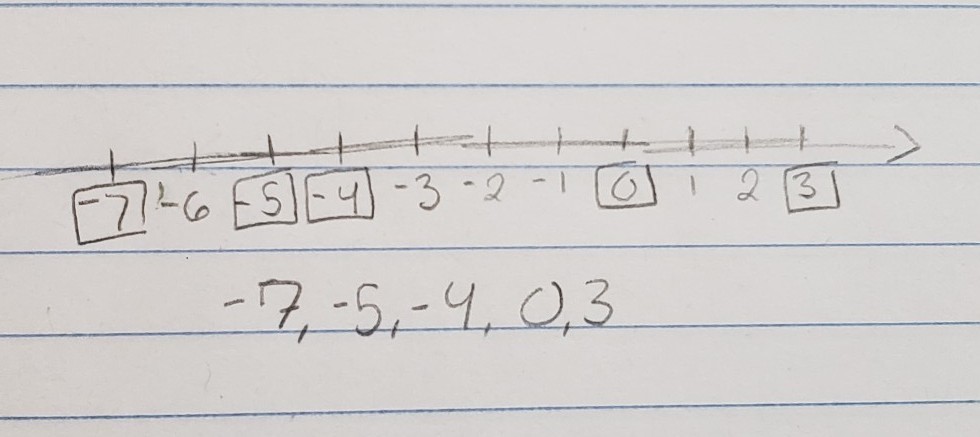 -7 -6 -5 -4 -3 -2 -1 0 1 2 3
-7, -5, -4, 0, 3